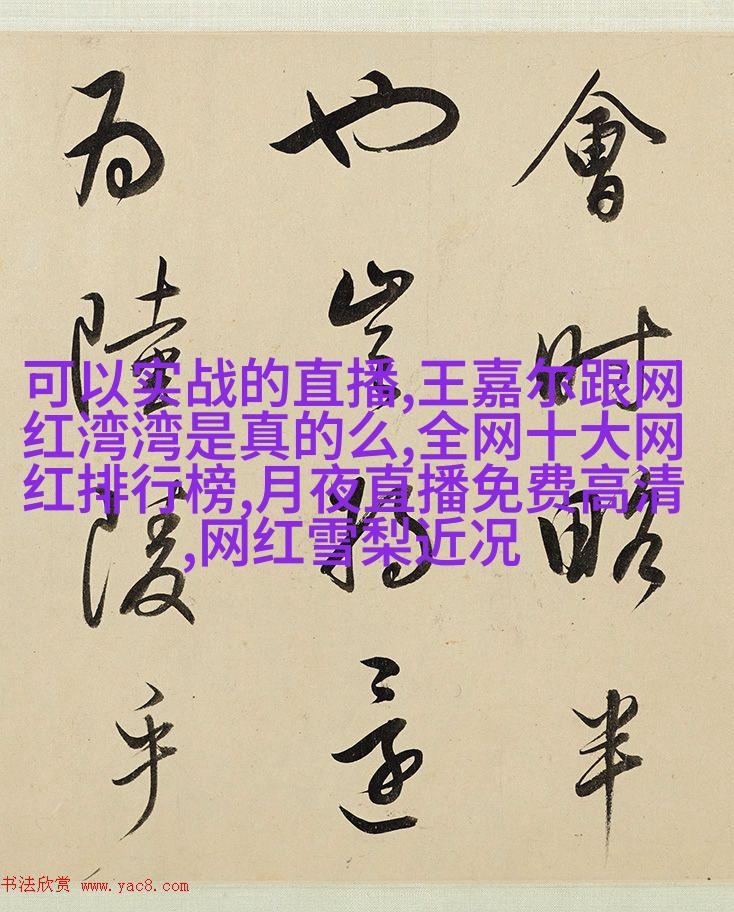 會時略半
也豈將還
為陸陵乎
可以实战的直播,王嘉尔跟网
红湾湾是真的么,全网十大网
红排行榜,月夜直播免费高清
,网红雪梨近况
书法欣赏 www.yac8.com